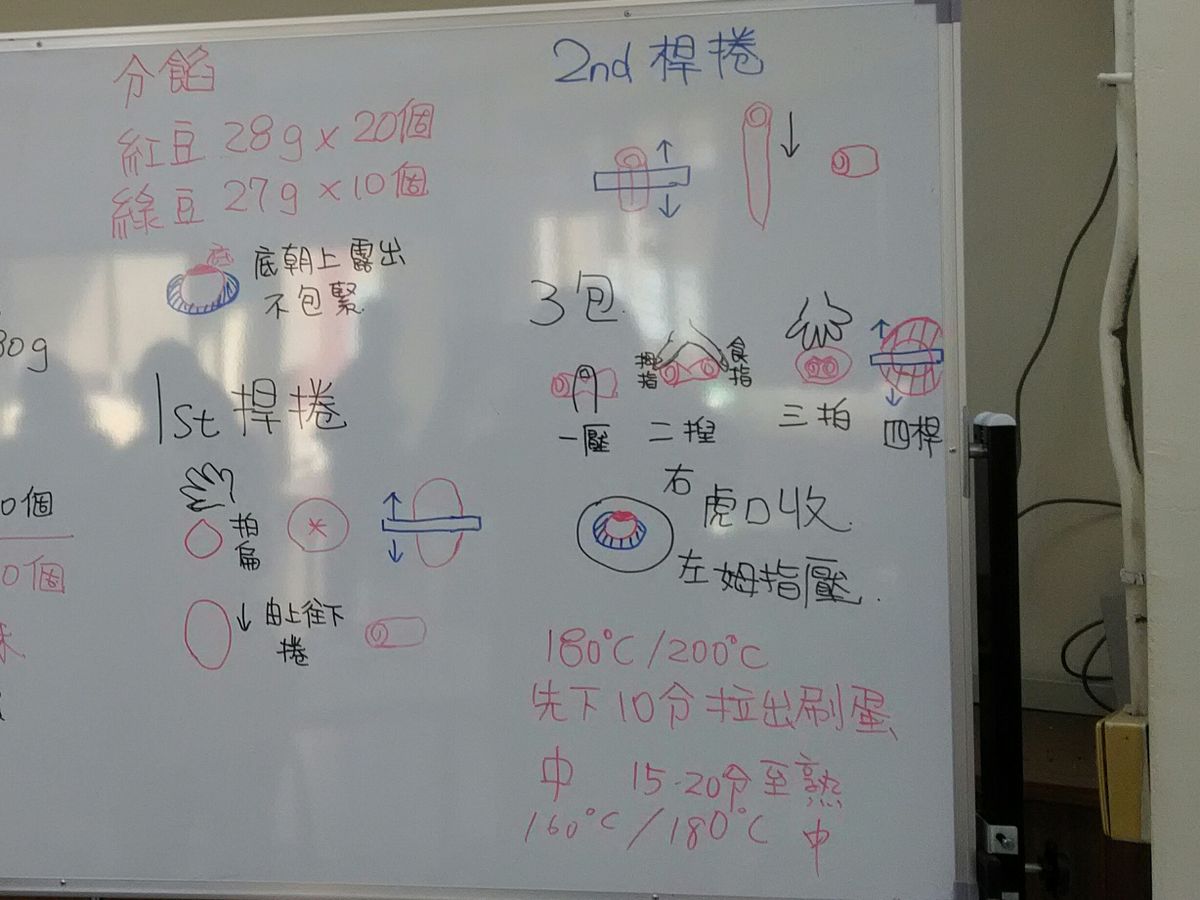 分餡
紅豆 28g × 20個
綠豆 27g × 10個
底
底朝上露出
不包緊
80g
1st 捍捲
0個
0個
拍扁
由上往下
捲
2nd 桿捲
3包
拇指
食指
一壓
二捏
三拍
四桿
右
虎口收
左姆指壓
180°C/200°C
先下10分拉出刷蛋
中 15-20分至熟
160°C/180°C 中